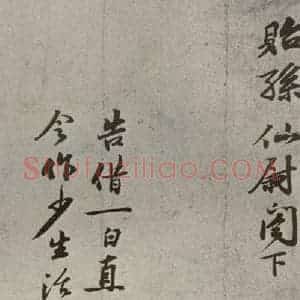 貽孫仙尉閣下
告借一白直
令作少生活
Shufaziliao.COM